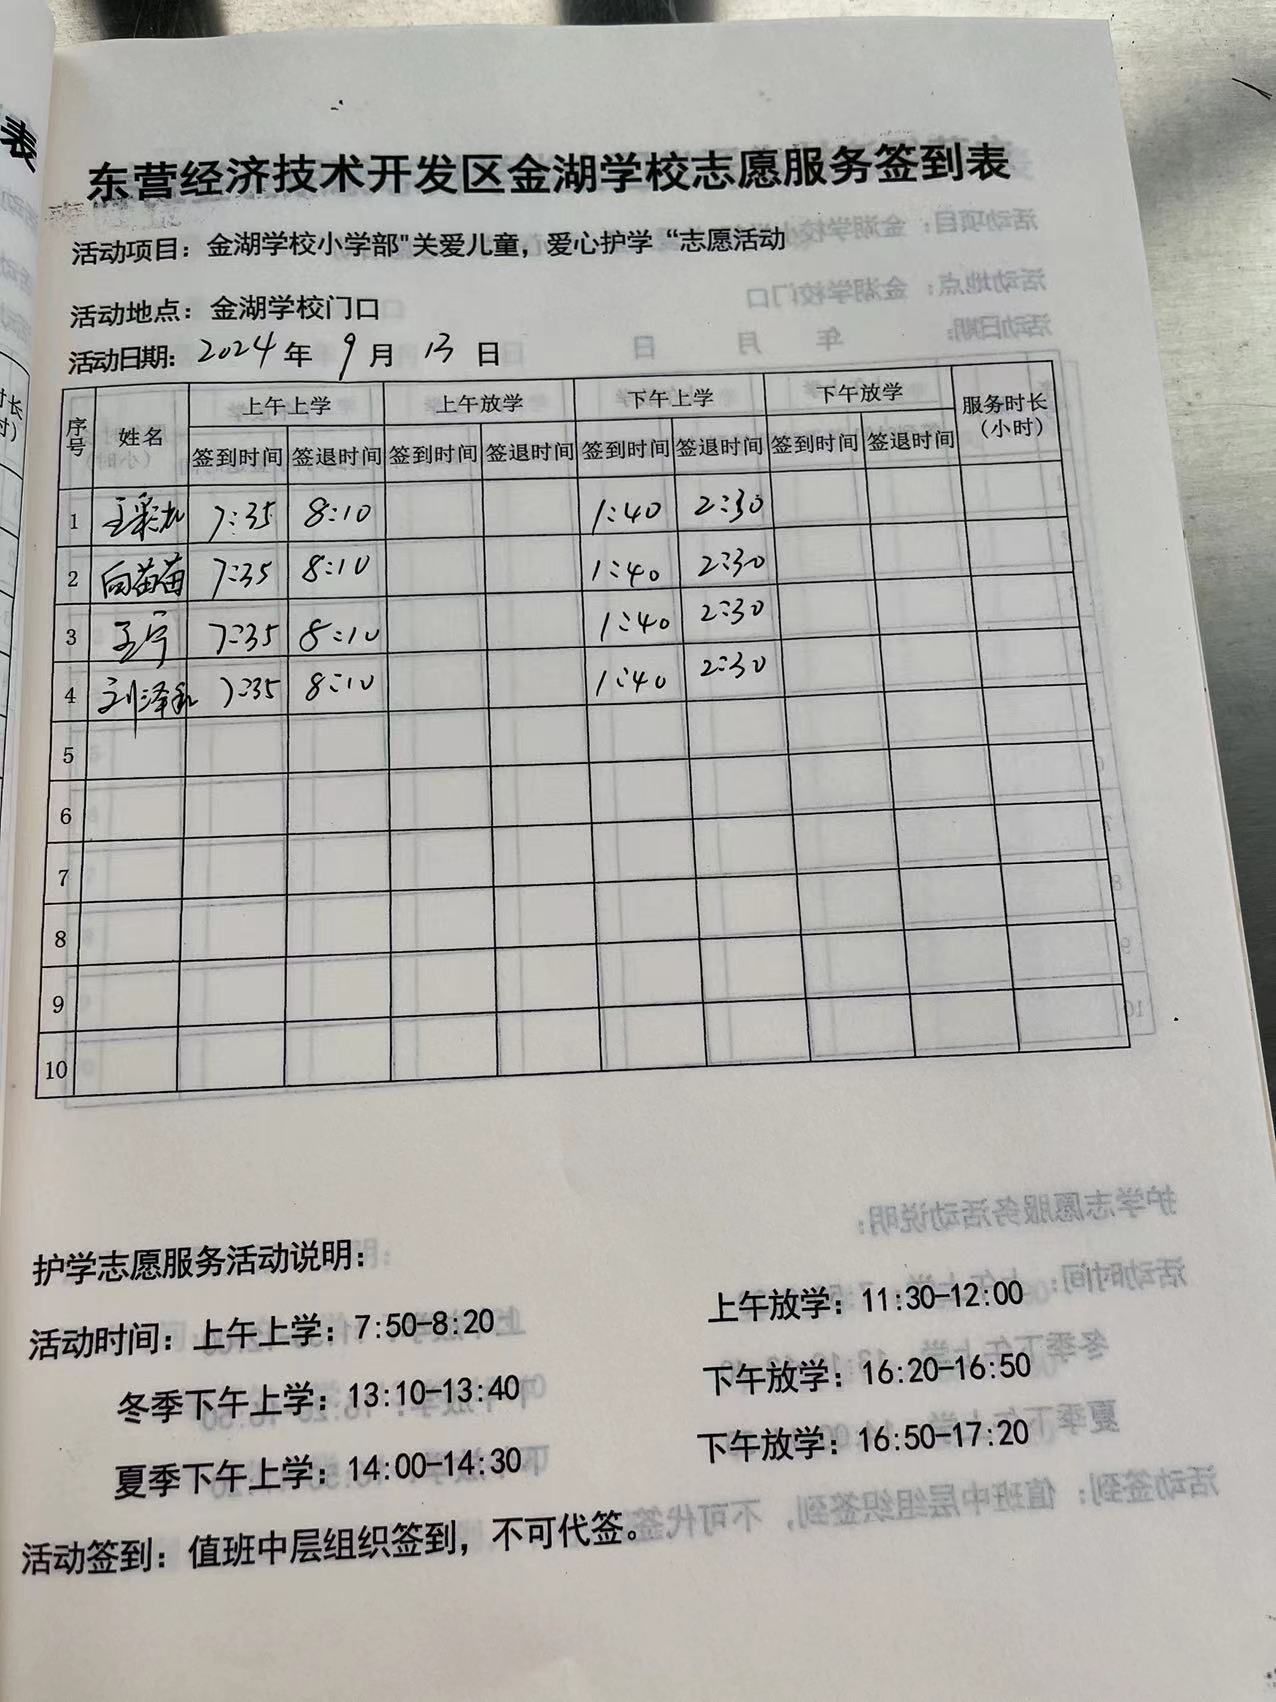 表
东营经济技术开发区金湖学校志愿服务签到表
活动项目：金湖学校小学部"关爱儿童，爱心护学“志愿活动
活动地点：金湖学校门口
活动日期：2024年9月13日
序号 姓名 上午上学 上午放学 下午上学 下午放学 服务时长（小时）
签到时间 签退时间 签到时间 签退时间 签到时间 签退时间 签到时间 签退时间
1 王彩 7:35 8:10 1:40 2:30
2 向苗苗 7:35 8:10 1:40 2:30
3 王宁 7:35 8:10 1:40 2:30
4 刘泽 7:35 8:10 1:40 2:30
5
6
7
8
9
10
护学志愿服务活动说明：
活动时间：上午上学：7:50-8:20 上午放学：11:30-12:00
冬季下午上学：13:10-13:40 下午放学：16:20-16:50
夏季下午上学：14:00-14:30 下午放学：16:50-17:20
活动签到：值班中层组织签到，不可代签。